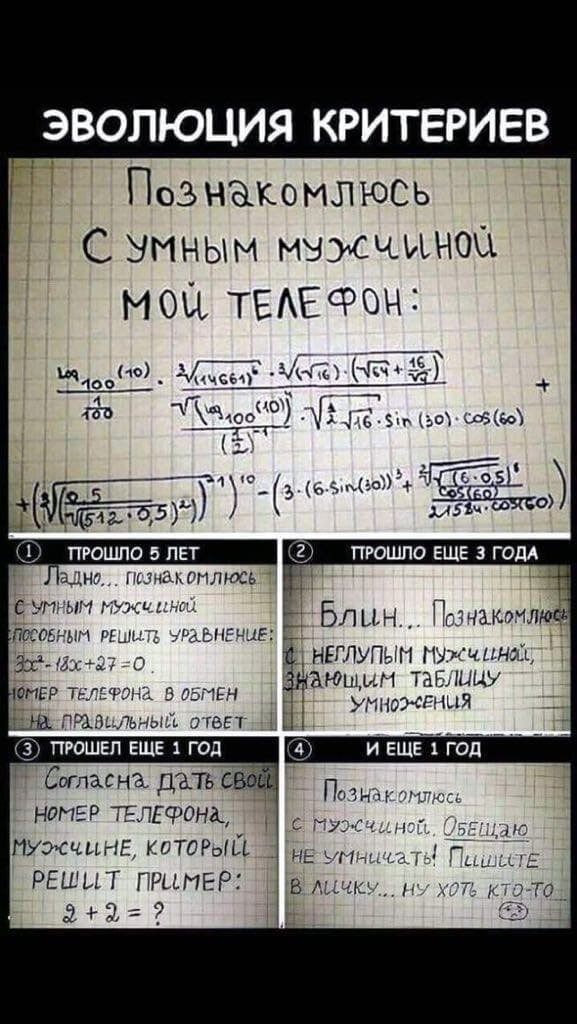 ЭВОЛЮЦИЯ КРИТЕРИЕВ
Познакомлюсь
с умным мужчиной
мой телефон:
log₁₀₀(10) / (1/100) · ∛(14661)⁶ · ∛(√16) · (√64 + 16/√4) / (√(log₁₀₀(10)) / (1/2)⁻¹ · √(1/2 √16) · sin(30) · cos(60)) +
+ (∛(0,5 / √(512 · 0,5)²))⁻¹)¹⁰ − (3 · (6 · sin(30))³ + ∛√(6 · 0,5)⁶ / cos(60) / 21584 · cos(60))
1 ПРОШЛО 5 ЛЕТ
Ладно... познакомлюсь
с умным мужчиной
способным решить уравнение:
3x² - 18x + 27 = 0.
номер телефона в обмен
на правильный ответ
2 ПРОШЛО ЕЩЕ 3 ГОДА
Блин... Познакомлюсь
с неглупым мужчиной,
знающим таблицу
умножения
3 ПРОШЕЛ ЕЩЕ 1 ГОД
Согласна дать свой
номер телефона,
мужчине, который
решит пример:
2 + 2 = ?
4 И ЕЩЕ 1 ГОД
Познакомлюсь
с мужчиной. Обещаю
не умничать! Пишите
в личку... ну хоть кто-то